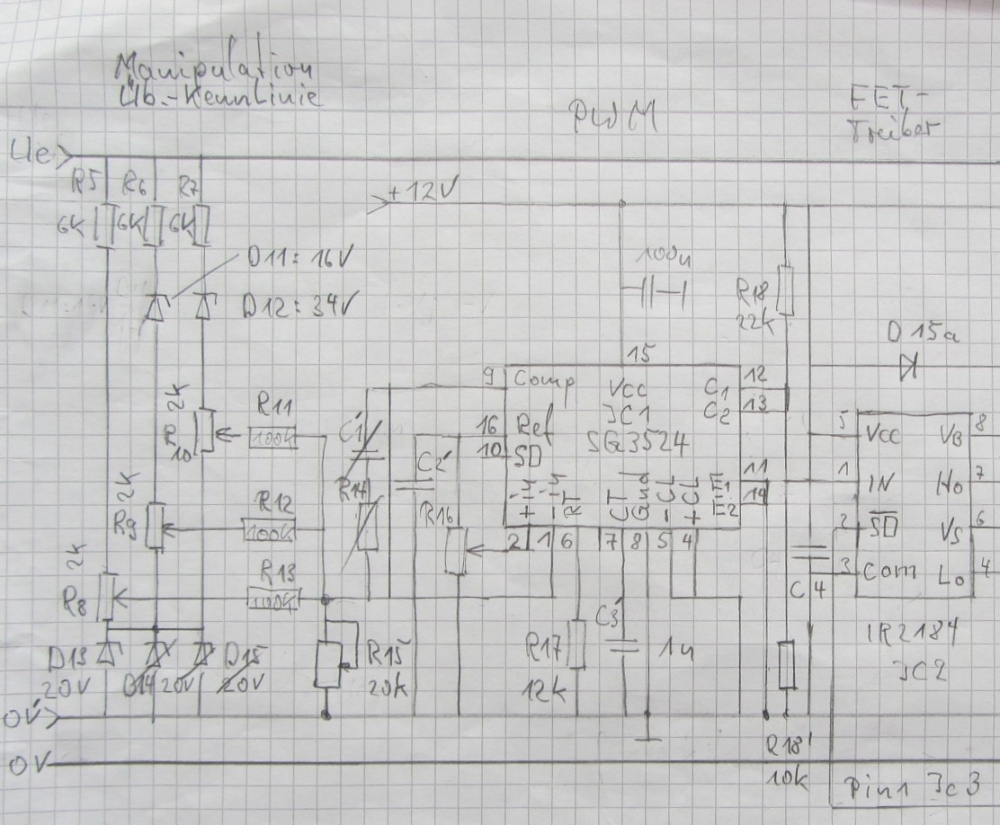 Manipulation
Üb.-Kennlinie
PWM
FET-
Treiber
Ue
R5 R6 R7
6K 6K 6K
+12V
D11: 16V
D12: 34V
100u
R18
22K
D15a
2K
R
10
R11
100K
C1'
9 Comp
16 Ref
10 SD
15
Vcc
IC1
SG3524
C1 12
C2 13
E1 11
E2 14
+IN -IN RT CT Gnd -CL +CL
2 1 6 7 8 5 4
5 Vcc VB 8
1 IN Ho 7
2 SD VS 6
3 Com Lo 4
C2'
R14
R16
2K
R9
R12
100K
2K
R8
R13
100K
C4
IR2184
IC2
D13
20V
D14 20V
D15
20V
R15
20K
R17
12K
C3'
1u
0V'
R18'
10K
0V
Pin1 Ic3